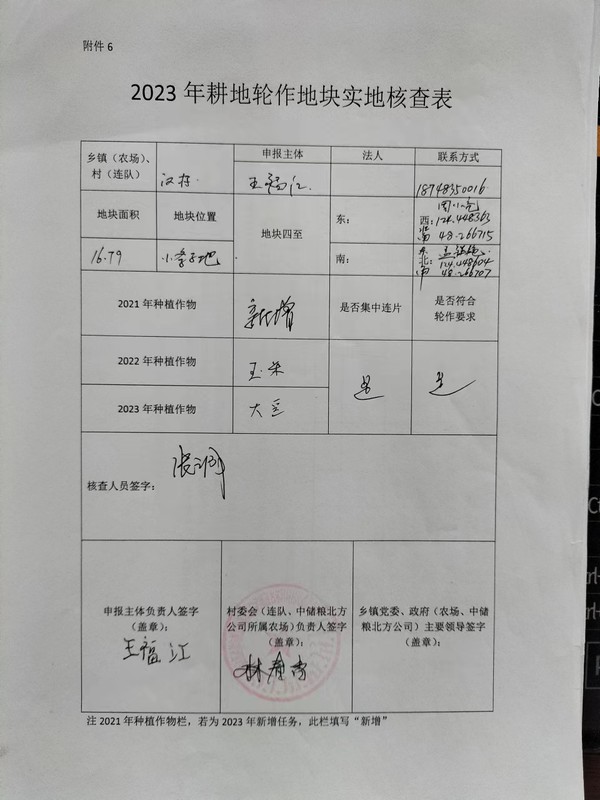 附件 6
2023 年耕地轮作地块实地核查表
乡镇（农场）、
村（连队）
申报主体
法人
联系方式
王福江
18748350016
地块面积
地块位置
地块四至
东：
西：
124.448363
48.266715
16.79
南：
北：
124.448604
48.266707
2021 年种植作物
新增
是否集中连片
是否符合
轮作要求
2022 年种植作物
玉米
是
是
2023 年种植作物
大豆
核查人员签字：
申报主体负责人签字
（盖章）：
王福江
村委会（连队、中储粮北方
公司所属农场）负责人签字
（盖章）：
乡镇党委、政府（农场、中储
粮北方公司）主要领导签字
（盖章）：
注 2021 年种植作物栏，若为 2023 年新增任务，此栏填写“新增”